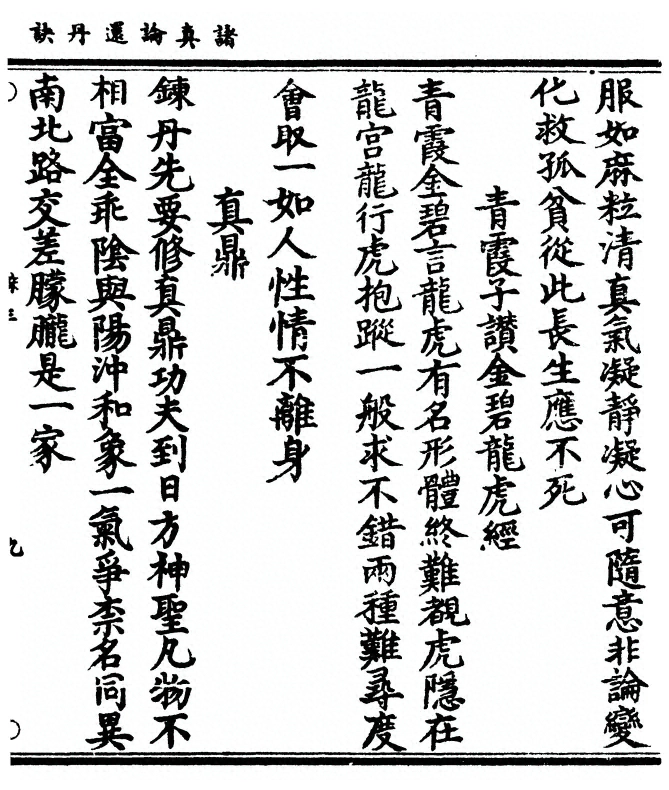 諸真論還丹訣
服如麻粒清真氣凝靜凝心可隨意非論變
化救孤貧從此長生應不死
青霞子讚金碧龍虎經
青霞金碧言龍虎有名形體終難覩虎隱在
龍宮龍行虎抱蹤一般求不錯兩種難尋度
會取一如人性情不離身
真鼎
鍊丹先要修真鼎功夫到日方神聖凡物不
相富全乖陰與陽沖和象一氣爭柰名同異
南北路交差朦朧是一家
九